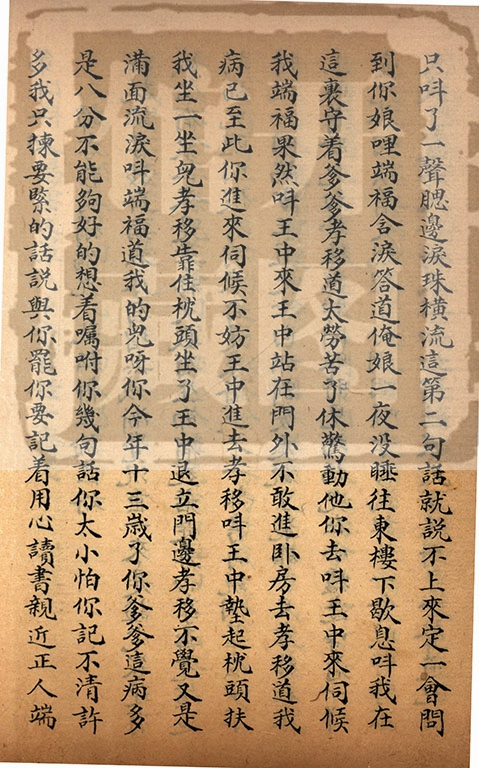 只呌了一聲腮邊淚珠橫流這第二句話就說不上來定一會問
到你娘哩端福含淚答道俺娘一夜没睡往東樓下歇息呌我在
這裏守着爹爹孝移道太勞苦了休驚動他你去呌王中來伺候
我端福果然呌王中來王中站在門外不敢進卧房去孝移道我
病已至此你進來伺候不妨王中進去孝移呌王中墊起枕頭扶
我坐一坐兒孝移靠住枕頭坐了王中退立門邊孝移不覺又是
滿面流淚呌端福道我的兒呀你今年十三歲了你爹爹這病多
是八分不能夠好的想着囑咐你幾句話你太小怕你記不清許
多我只揀要緊的話說與你罷你要記着用心讀書親近正人端